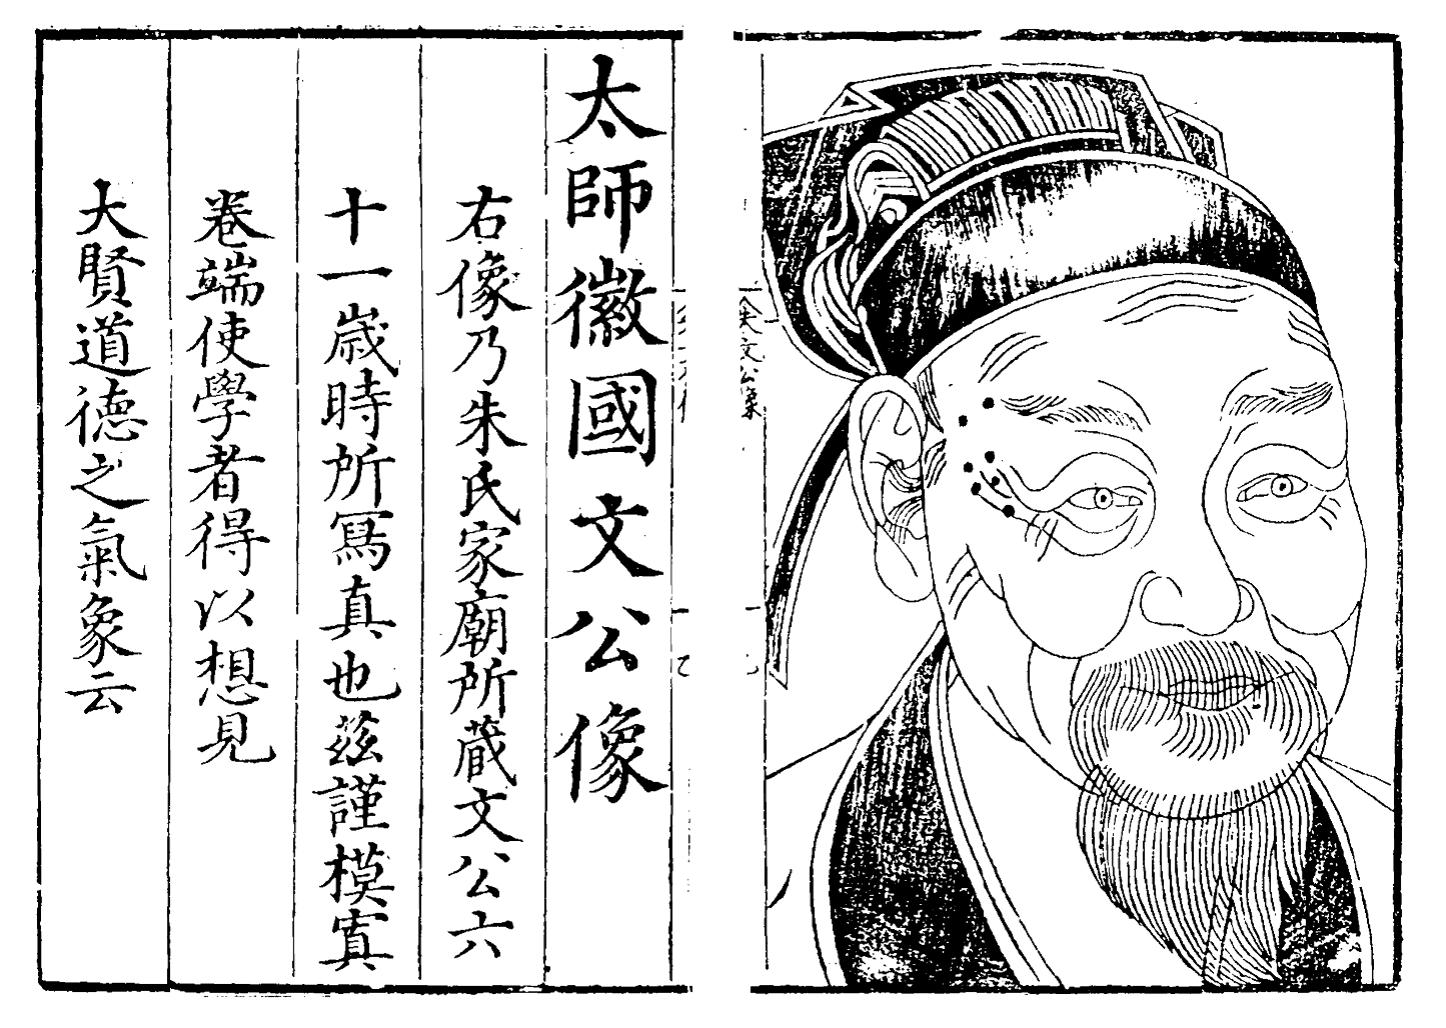 太師徽國文公像
右像乃朱氏家廟所蔵文公六
十一歳時所冩真也茲謹模寘
卷端使學者得以想見
大賢道德之氣象云
朱文公像